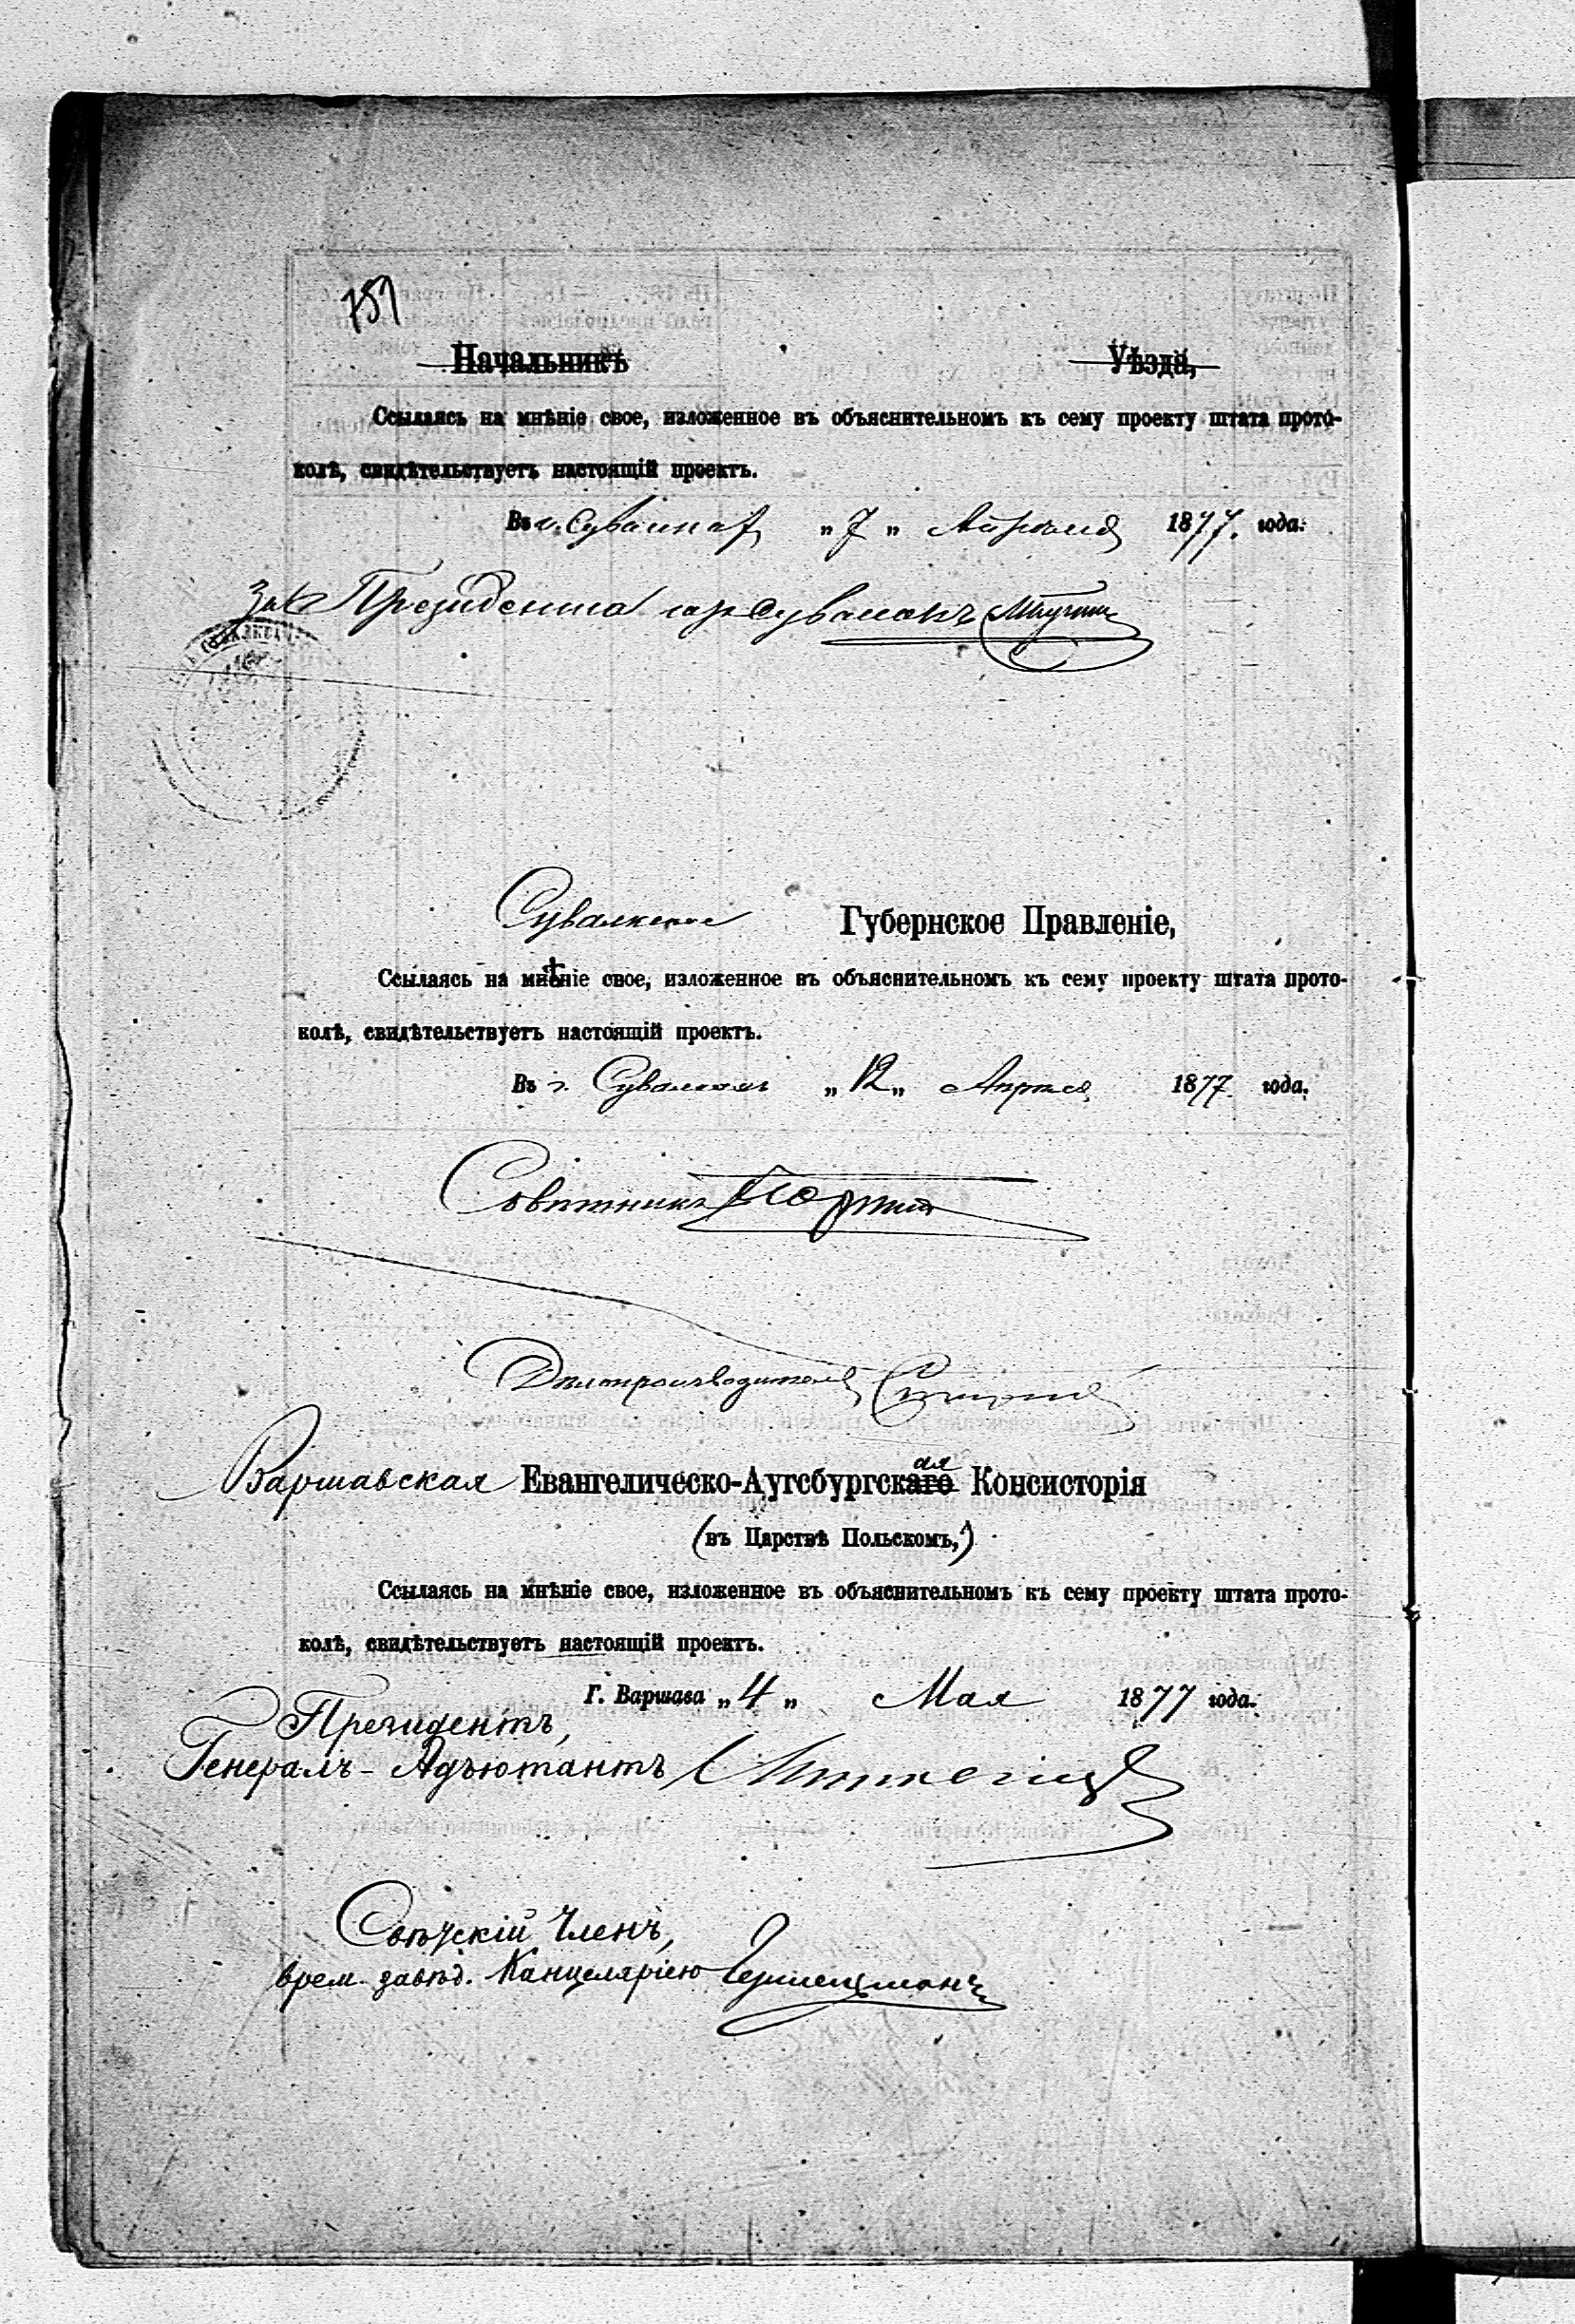 759
Начальникъ Уѣзда,
Ссылаясь на мнѣніе свое, изложенное въ объяснительномъ къ сему проекту штата прото-
колѣ, свидѣтельствуетъ настоящій проектъ.
Въ г. Сувалках „7„ Апрѣля 1877. года.
За Президента гор Сувалокъ
Сувалкское Губернское Правленіе,
Ссылаясь на мнѣніе свое, изложенное въ объяснительномъ къ сему проекту штата прото-
колѣ, свидѣтельствуетъ настоящій проектъ.
Въ г. Сувалкахъ „12„ Апрѣля 1877 года.
Совѣтникъ
Дѣлопроизводитель
Варшавская Евангелическо-Аугсбургскаго ая Консисторія
(въ Царствѣ Польскомъ,)
Ссылаясь на мнѣніе свое, изложенное въ объяснительномъ къ сему проекту штата прото-
колѣ, свидѣтельствуетъ настоящій проектъ.
Г. Варшава „4„ Мая 1877 года.
Президентъ,
Генералъ-Адъютантъ
Свѣтскій Членъ,
врем. завѣд. Канцеляріею